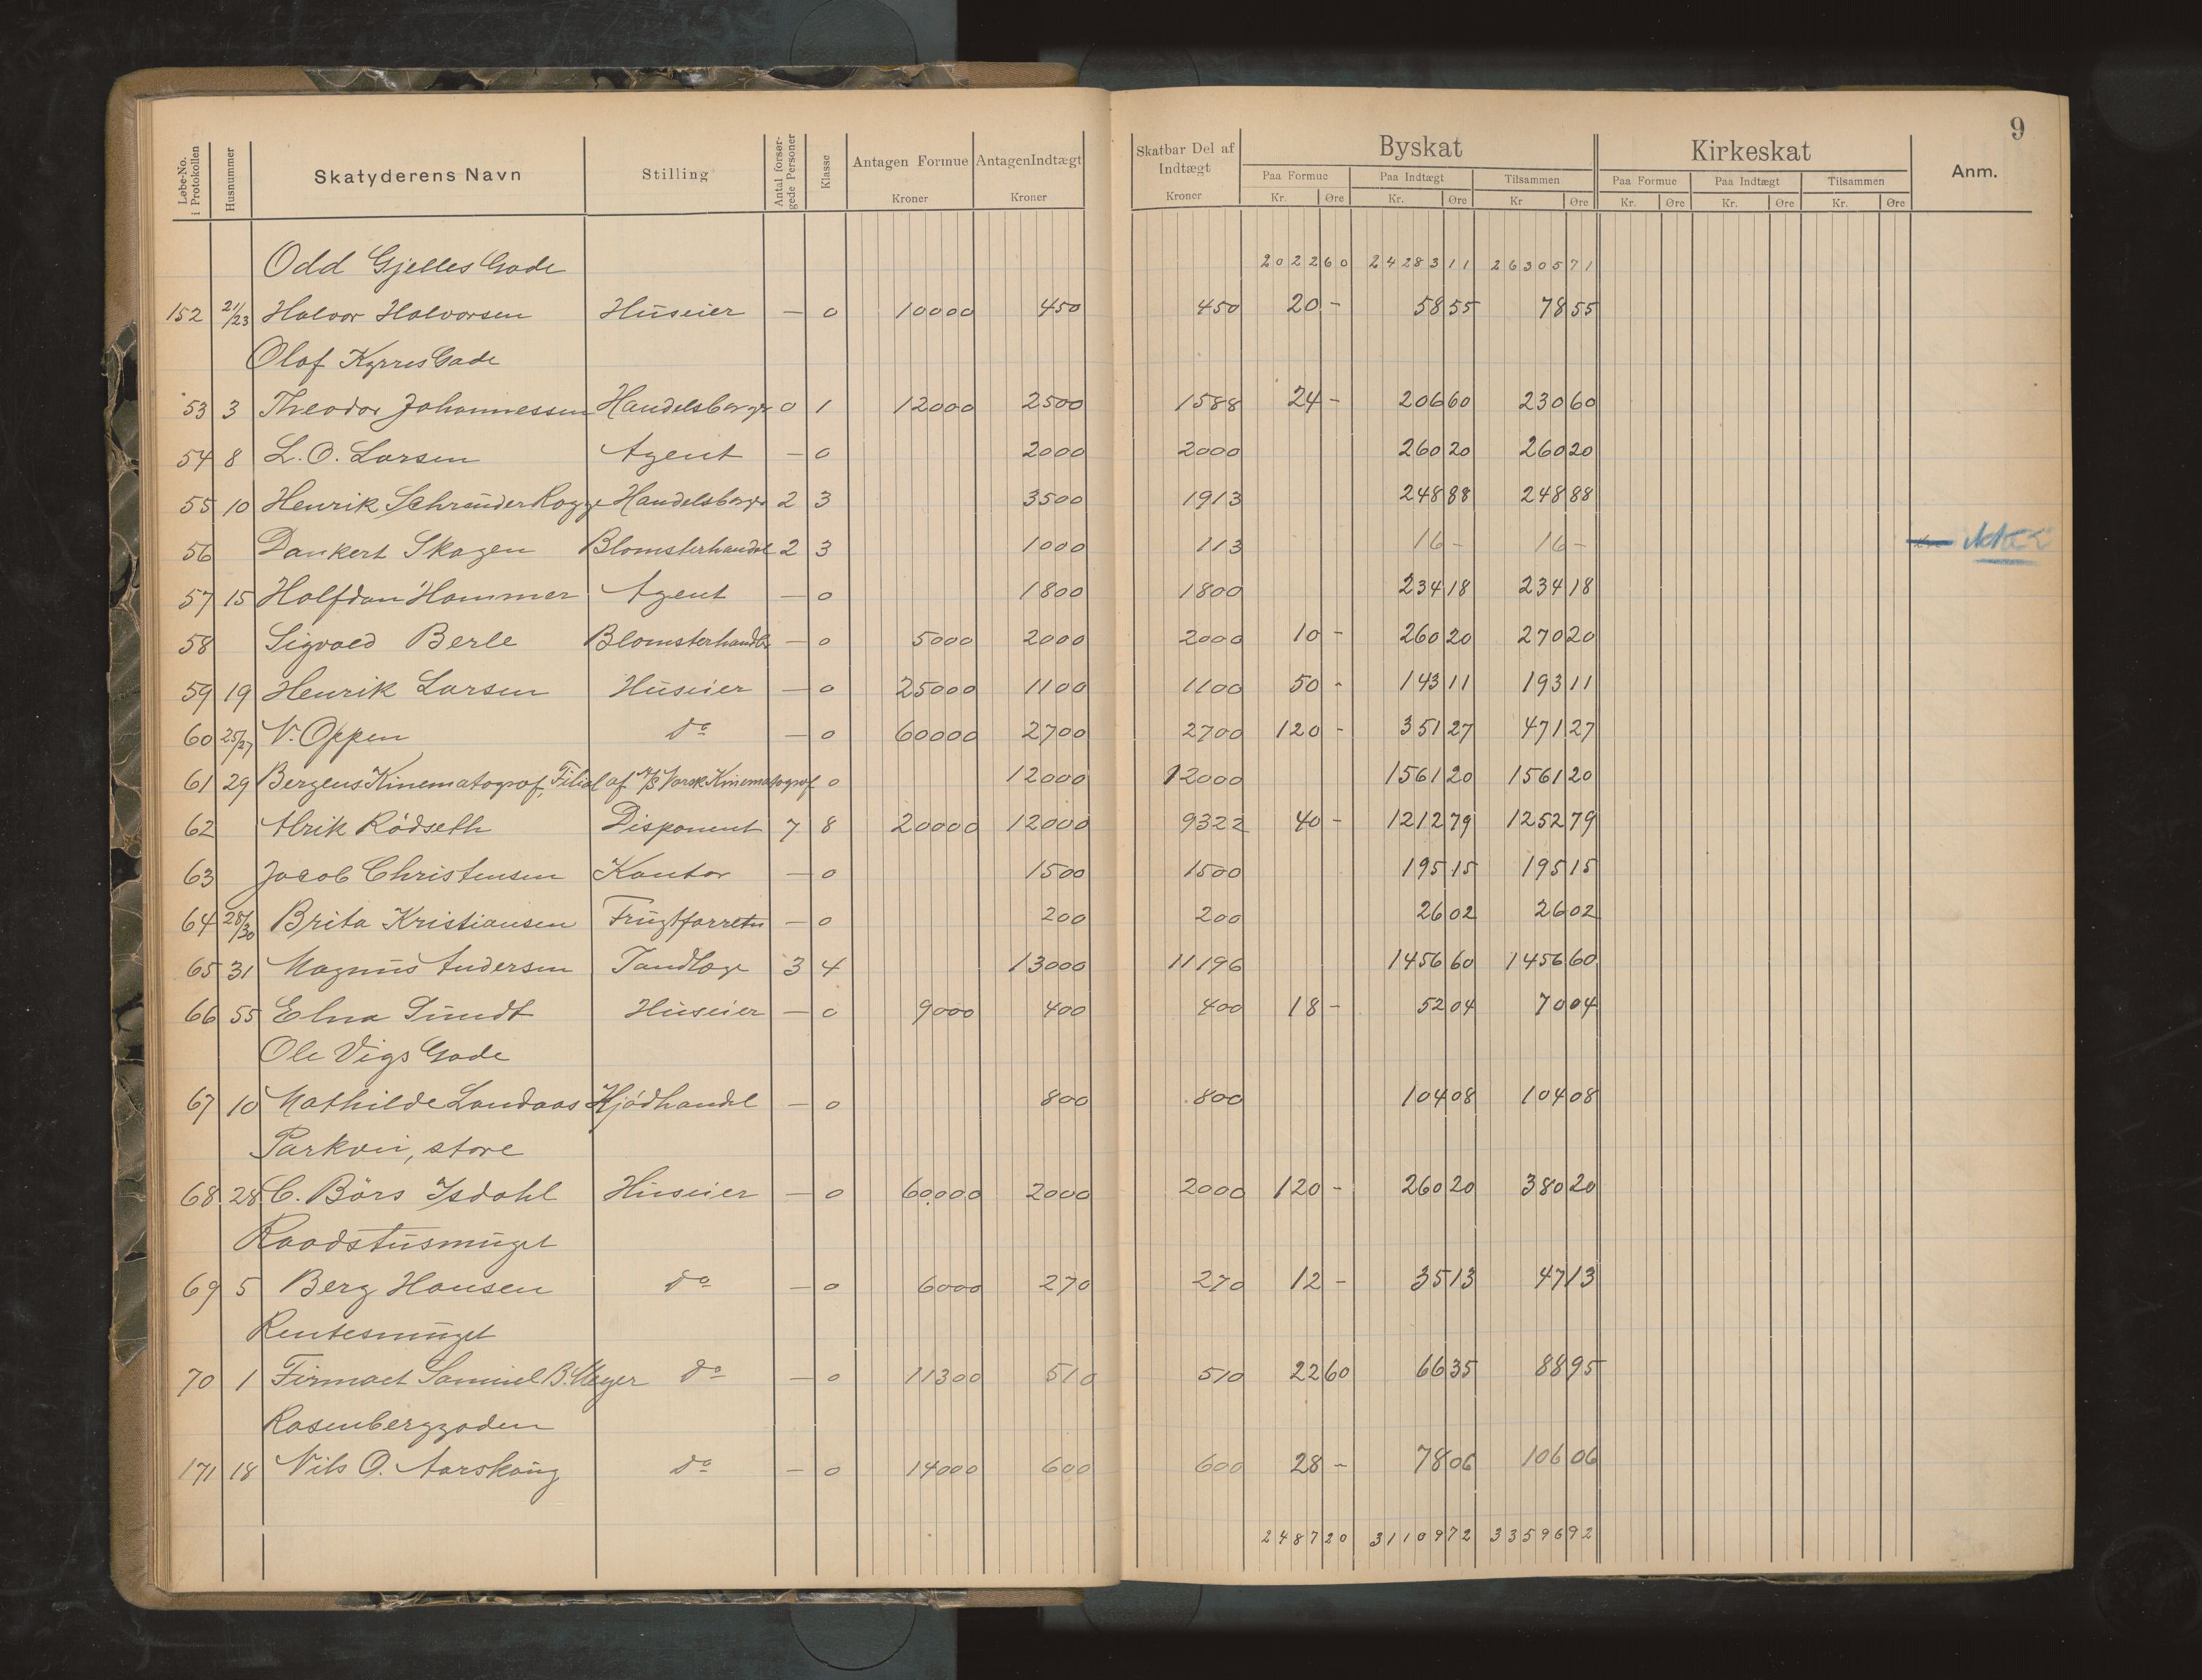 9
Løbe-No. i Protokollen Husnummer Skatyderens Navn Stilling Antal forsørgede Personer Klasse Antagen Formue Kroner Antagen Indtægt Kroner Skatbar Del af Indtægt Kroner Byskat Paa Formue Kr. Øre Paa Indtægt Kr. Øre Tilsammen Kr Øre Kirkeskat Paa Formue Kr. Øre Paa Indtægt Kr. Øre Tilsammen Kr. Øre Anm.
Odd Gjelles Gade 2022 60 24283 11 26305 71
152 21/23 Halvor Halvorsen Huseier — 0 10000 450 450 20 - 58 55 78 55
Olaf Kyrres Gade
53 3 Theodor Johannessen Handelsborger 0 1 12000 2500 1588 24 - 206 60 230 60
54 8 L. O. Larsen Agent — 0 2000 2000 260 20 260 20
55 10 Henrik Schrøuder Rogge Handelsborger 2 3 3500 1913 248 88 248 88
56 Dankert Skagen Blomsterhandel 2 3 1000 113 16 - 16 -
57 15 Halfdan Hammer Agent — 0 1800 1800 234 18 234 18
58 Sigvald Berle Blomsterhandler — 0 5000 2000 2000 10 - 260 20 270 20
59 19 Henrik Larsen Huseier — 0 25000 1100 1100 50 - 143 11 193 11
60 25/27 V. Oppen do — 0 60000 2700 2700 120 - 351 27 471 27
61 29 Bergens Kinematograf, Filial af A/S Norsk Kinematograf 0 12000 12000 1561 20 1561 20
62 Alrik Rödseth Disponent 7 8 20000 12000 9322 40 - 1212 79 1252 79
63 Jacob Christensen Kontor — 0 1500 1500 195 15 195 15
64 28/30 Brita Kristiansen Frugtforretn — 0 200 200 26 02 26 02
65 31 Magnus Andersen Tandlæge 3 4 13000 11196 1456 60 1456 60
66 55 Elna Sundt Huseier — 0 9000 400 400 18 - 52 04 70 04
Ole Vigs Gade
67 10 Mathilde Landaas Kjödhandel — 0 800 800 104 08 104 08
Parkvei, store
68 28 C. Börs Isdahl Huseier — 0 60000 2000 2000 120 - 260 20 380 20
Raadstusmuget
69 5 Berg Hansen do — 0 6000 270 270 12 - 35 13 47 13
Rentesmuget
70 1 Firmaet Samuel B. Meyer do — 0 11300 510 510 22 60 66 35 88 95
Rosenberggaden
171 18 Nils O. Aarskaug do — 0 14000 600 600 28 - 78 06 106 06
2487 20 31109 72 33596 92